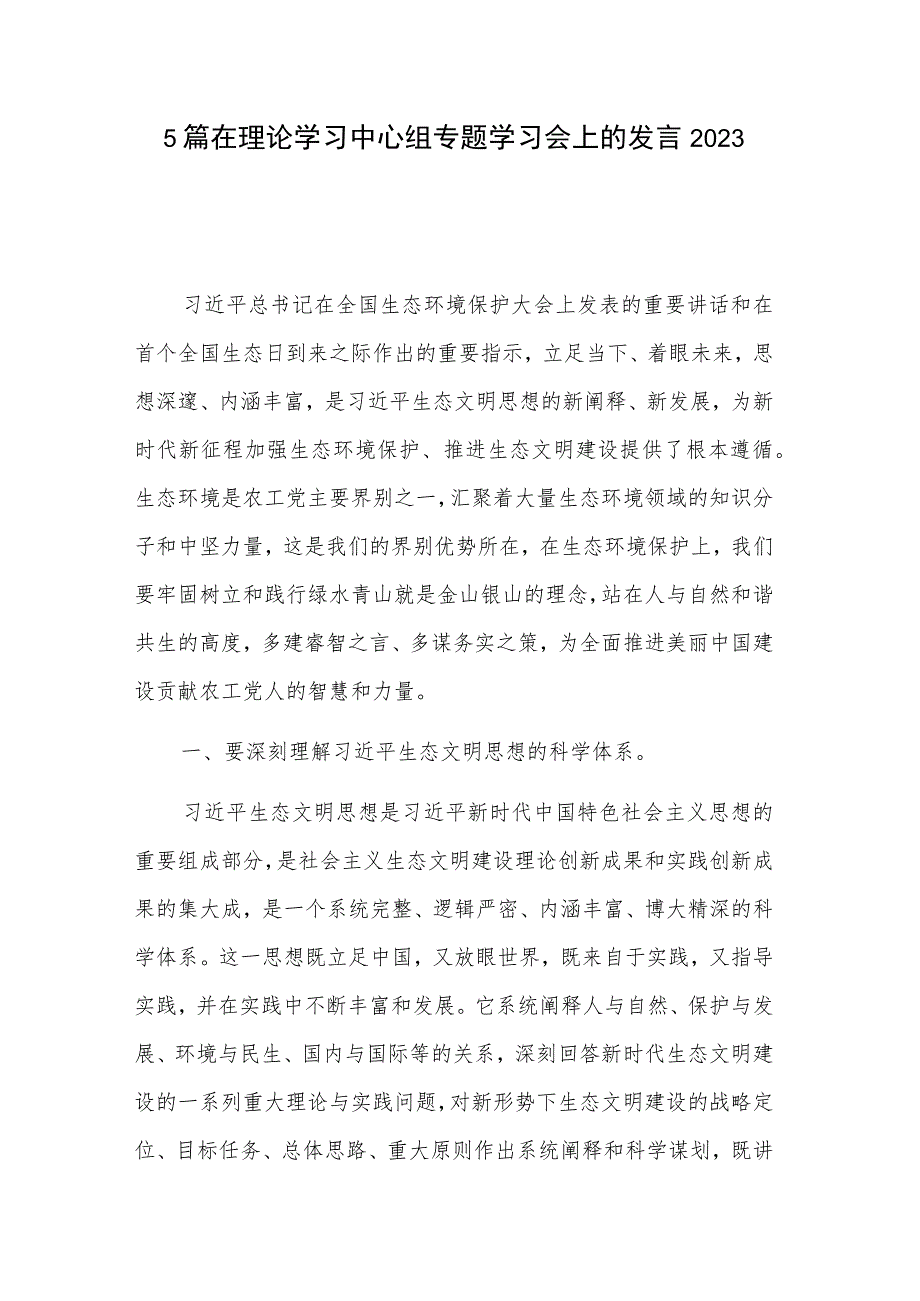 5篇在理论学习中心组专题学习会上的发言2023
习近平总书记在全国生态环境保护大会上发表的重要讲话和在
首个全国生态日到来之际作出的重要指示，立足当下、着眼未来，思
想深邃、内涵丰富，是习近平生态文明思想的新阐释、新发展，为新
时代新征程加强生态环境保护、推进生态文明建设提供了根本遵循。
生态环境是农工党主要界别之一，汇聚着大量生态环境领域的知识分
子和中坚力量，这是我们的界别优势所在，在生态环境保护上，我们
要牢固树立和践行绿水青山就是金山银山的理念，站在人与自然和谐
共生的高度，多建睿智之言、多谋务实之策，为全面推进美丽中国建
设贡献农工党人的智慧和力量。
一、要深刻理解习近平生态文明思想的科学体系。
习近平生态文明思想是习近平新时代中国特色社会主义思想的
重要组成部分，是社会主义生态文明建设理论创新成果和实践创新成
果的集大成，是一个系统完整、逻辑严密、内涵丰富、博大精深的科
学体系。这一思想既立足中国，又放眼世界，既来自于实践，又指导
实践，并在实践中不断丰富和发展。它系统阐释人与自然、保护与发
展、环境与民生、国内与国际等的关系，深刻回答新时代生态文明建
设的一系列重大理论与实践问题，对新形势下生态文明建设的战略定
位、目标任务、总体思路、重大原则作出系统阐释和科学谋划，既讲